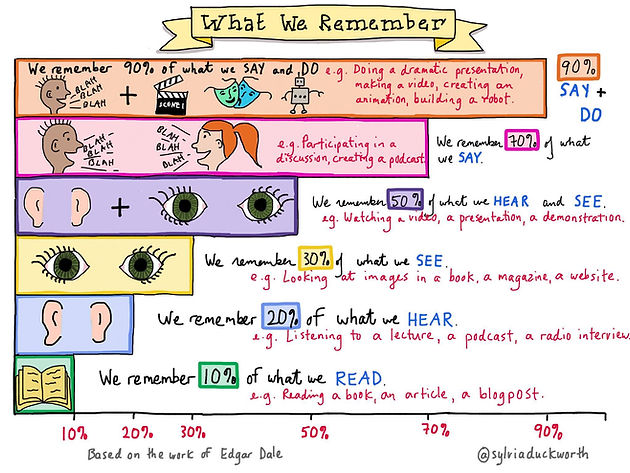 What We Remember
We remember 90% of what we SAY and DO
e.g. Doing a dramatic presentation,
making a video, creating an
animation, building a robot.
BLAH
BLAH
BLAH
+
SCENE!
90%
SAY +
DO
BLAH
BLAH
BLAH
BLAH
BLAH
BLAH
BLAH
e.g. Participating in a
discussion, creating a podcast.
We remember 70% of what
we SAY.
+
We remember 50% of what we HEAR and SEE.
eg. Watching a video, a presentation, a demonstration.
We remember 30% of what we SEE.
e.g. Looking at images in a book, a magazine, a website.
We remember 20% of what we HEAR.
e.g. Listening to a lecture, a podcast, a radio interview.
We remember 10% of what we READ.
e.g. Reading a book, an article, a blogpost.
10% 20% 30% 50% 70% 90%
Based on the work of Edgar Dale
@sylviaduckworth